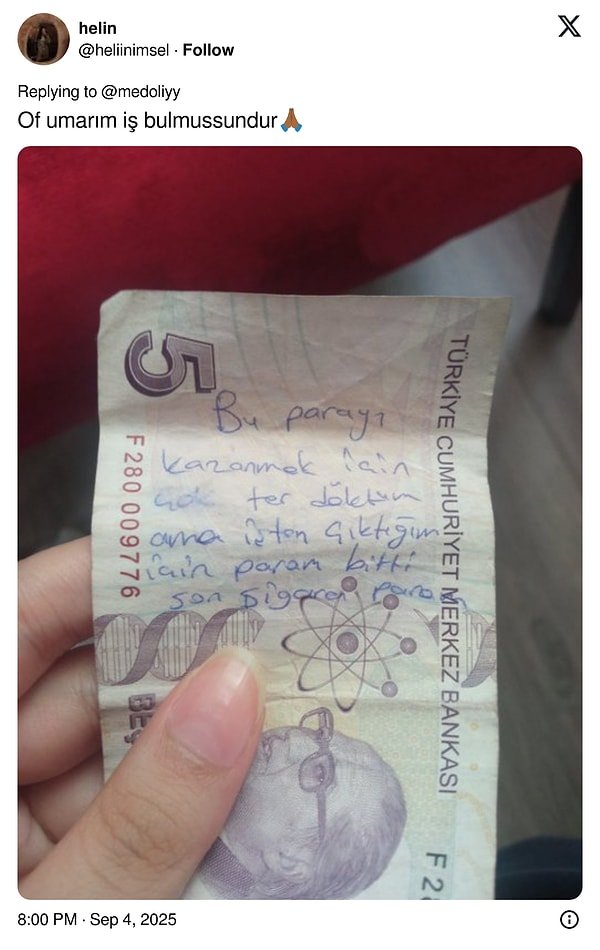 helin
@heliinimsel · Follow
Replying to @medoliyy
Of umarım iş bulmussundur🙏🏾
5
TÜRKİYE CUMHURİYET MERKEZ BANKASI
F280 009776
Bu parayı
kazanmak için
çok ter döktüm
ama işten çıktığım
için param bitti
son sigara param
BEŞ
F28
8:00 PM · Sep 4, 2025